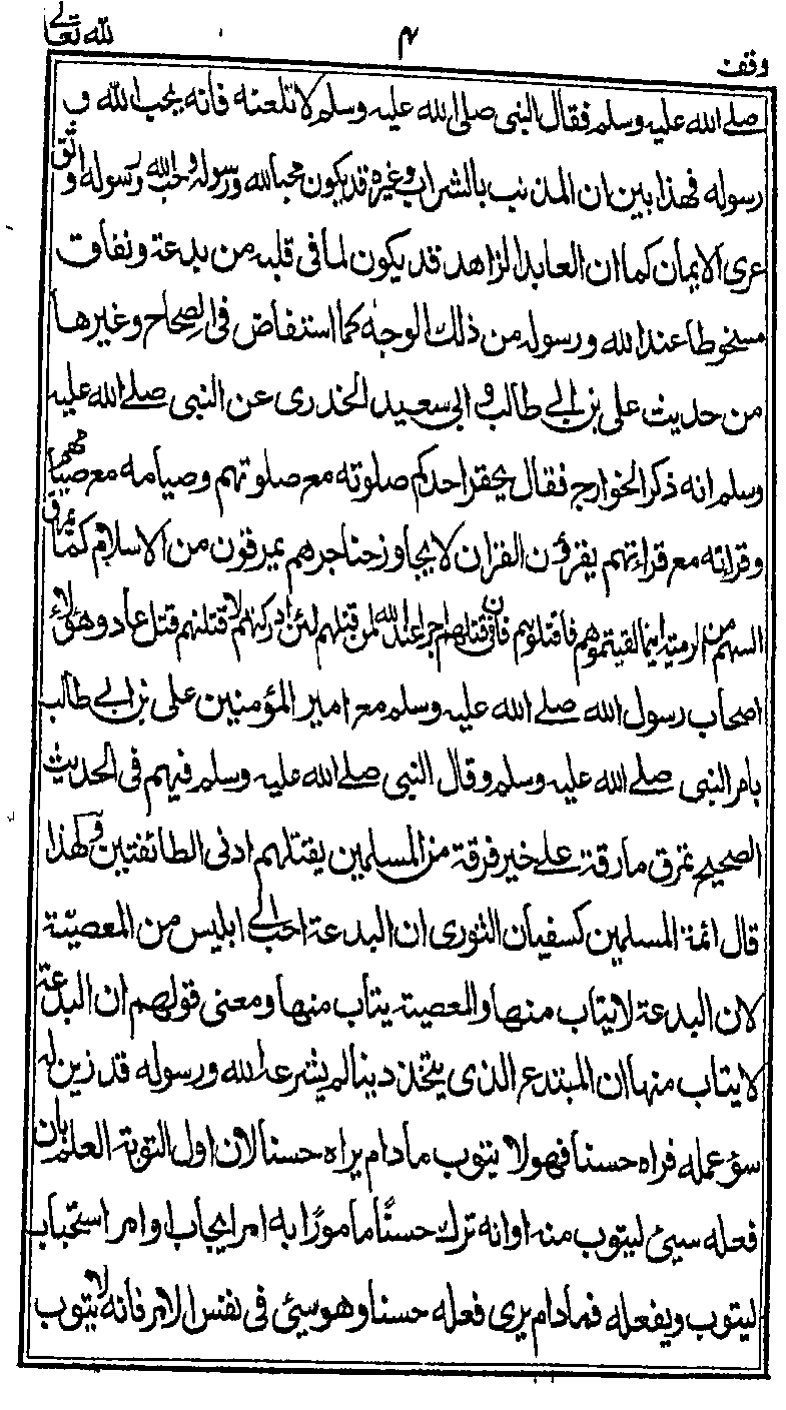 وقف ٤ لله تعالى
صلے الله عليه وسلم فقال النبى صلى الله عليه وسلم لا تلعنه فانه يحب الله و
رسوله فهذا بين ان المذنب بالشراب وغيره قد يكون محبا لله ورسوله وحب الله رسوله اوثق
عرى الايمان كما ان العابد الزاهد قد يكون لما فى قلبه من بدعة ونفاق
مسخوطا عند الله ورسوله من ذلك الوجه كما استفاض فى الصحاح وغيرها
من حديث على بن ابي طالب و ابى سعيد الخدرى عن النبى صلے الله عليه
وسلم انه ذكر الخوارج فقال يحقر احدكم صلوته مع صلوتهم وصيامه مع صيامهم
وقراءته مع قراءتهم يقرؤن القران لا يجاوز حناجرهم يمرقون من الاسلام كما يمرق
السهم من الرمية اينما لقيتموهم فاقتلوهم فان فى قتلهم اجرا عند الله لمن قتلهم لئن ادركتهم لاقتلنهم قتل عاد وهؤلاء
اصحاب رسول الله صلے الله عليه وسلم مع امير المؤمنين على بن ابي طالب
بامر النبى صلے الله عليه وسلم وقال النبى صلے الله عليه وسلم فيهم فى الحديث
الصحيح تمرق مارقة علے خير فرقة من المسلمين يقتلهم ادنى الطائفتين ولهذا
قال ائمة المسلمين كسفيان الثورى ان البدعة احب الى ابليس من المعصية
لان البدعة لا يتاب منها والمعصية يتاب منها ومعنى قولهم ان البدعة
لا يتاب منها ان المبتدع الذى يتخذ دينا لم يشرعه الله ورسوله قد زين له
سؤ عمله فراه حسنا فهو لا يتوب مادام يراه حسنا لان اول التوبة العلم بان
فعله سيئ ليتوب منه او انه ترك حسنًا مامورًا به امر ايجاب او امر استحباب
ليتوب ويفعله فمادام يرى فعله حسنا وهو سيئ فى نفس الامر فانه لا يتوب